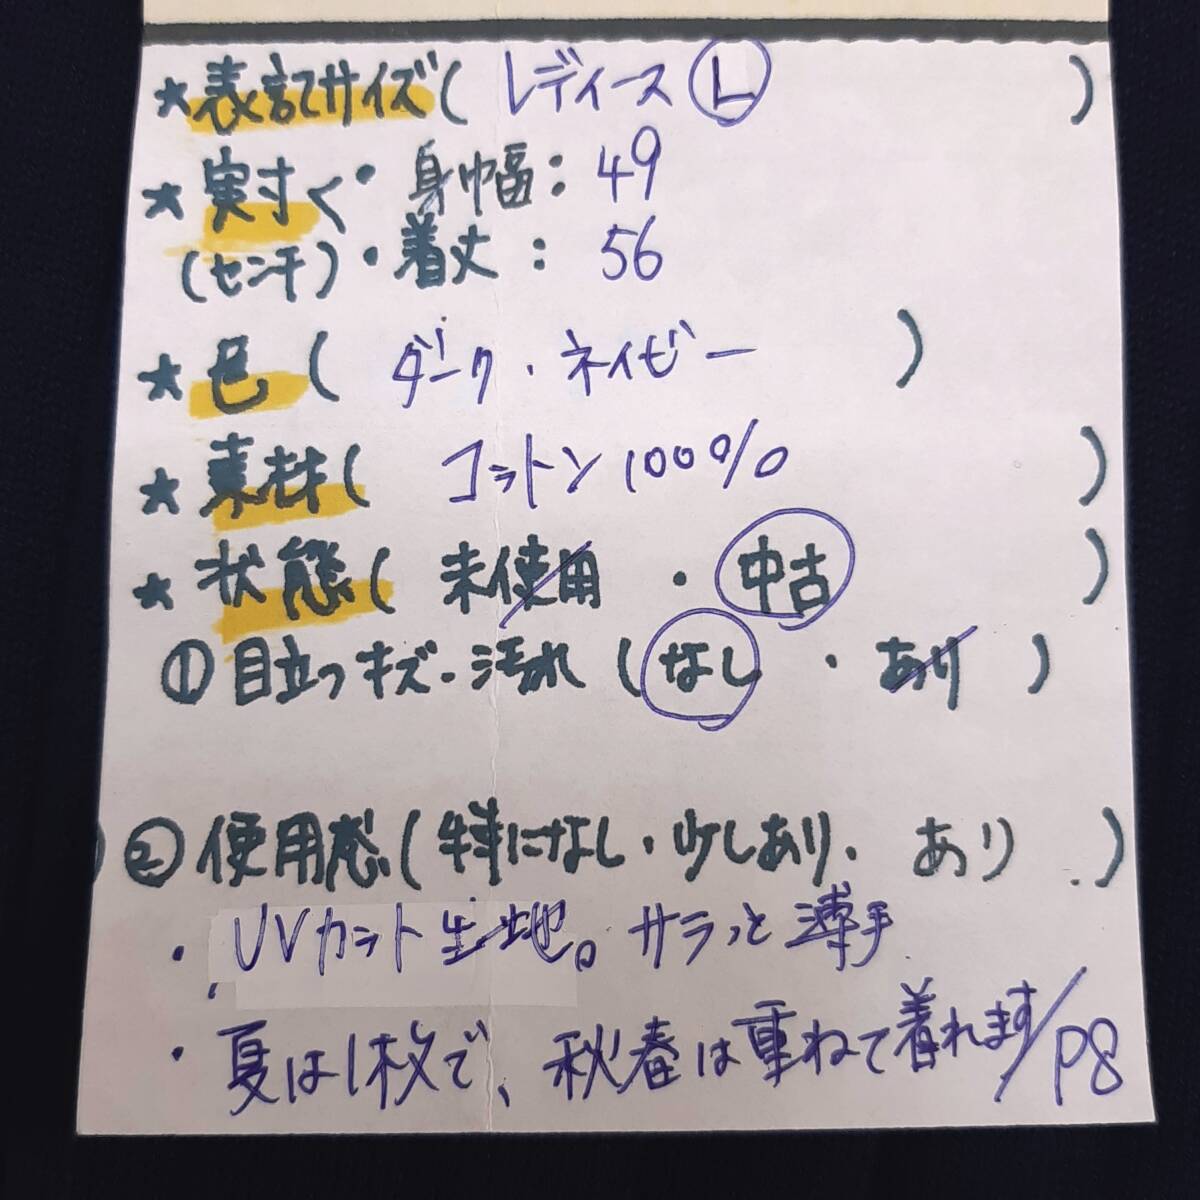 ★表記サイズ( レディース Ⓛ )
★実寸く・身幅: 49
(センチ)・着丈: 56
★色( ダーク・ネイビー )
★素材( コットン100% )
★状態( 未使用 ・ 中古 )
①目立つキズ・汚れ (なし ・ あり )
②使用感(特になし・少しあり・ あり .)
・UVカット生地。サラッと薄手
・夏は1枚で、秋春は重ねて着れます/P8